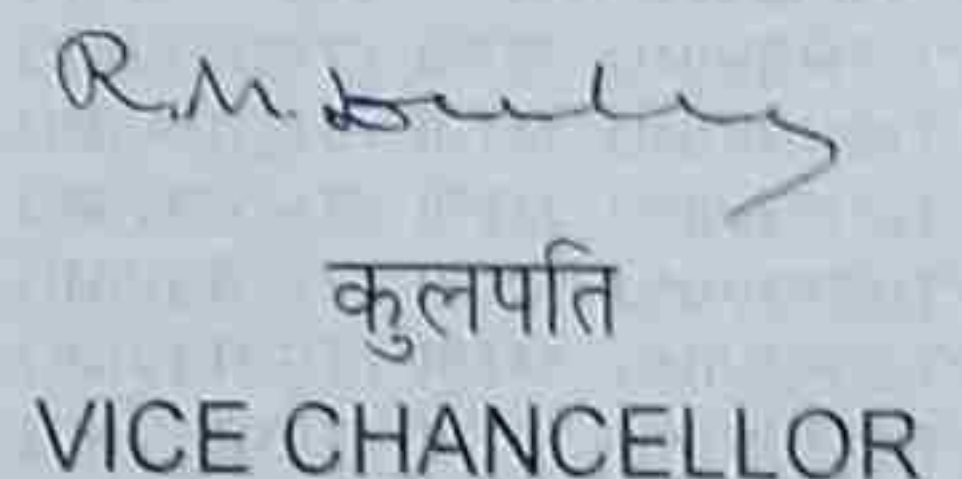 R.M. Dubey
कुलपति
VICE CHANCELLOR